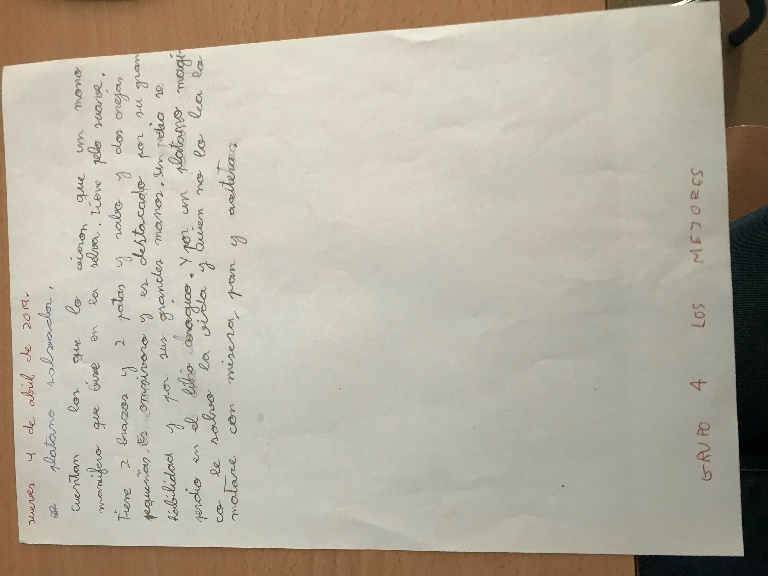 jueves 4 de abril de 2019.
El platano salvador.
Cuentan los que lo vieron que un mono
mamifero que vive en la selva. Tiene pelo suave.
Tiene 2 brazos y 2 patas y rabo y dos orejas
pequeñas. Es omnivoro y es destacado por su gran
habilidad y por sus grandes manos. Un dia se
perdio en el libro magico. Y por un platano magi-
co le salvo la vida y Quien no lo lea lo
matare con miseria, pan y aceitera.
GRUPO 4 LOS MEJORES